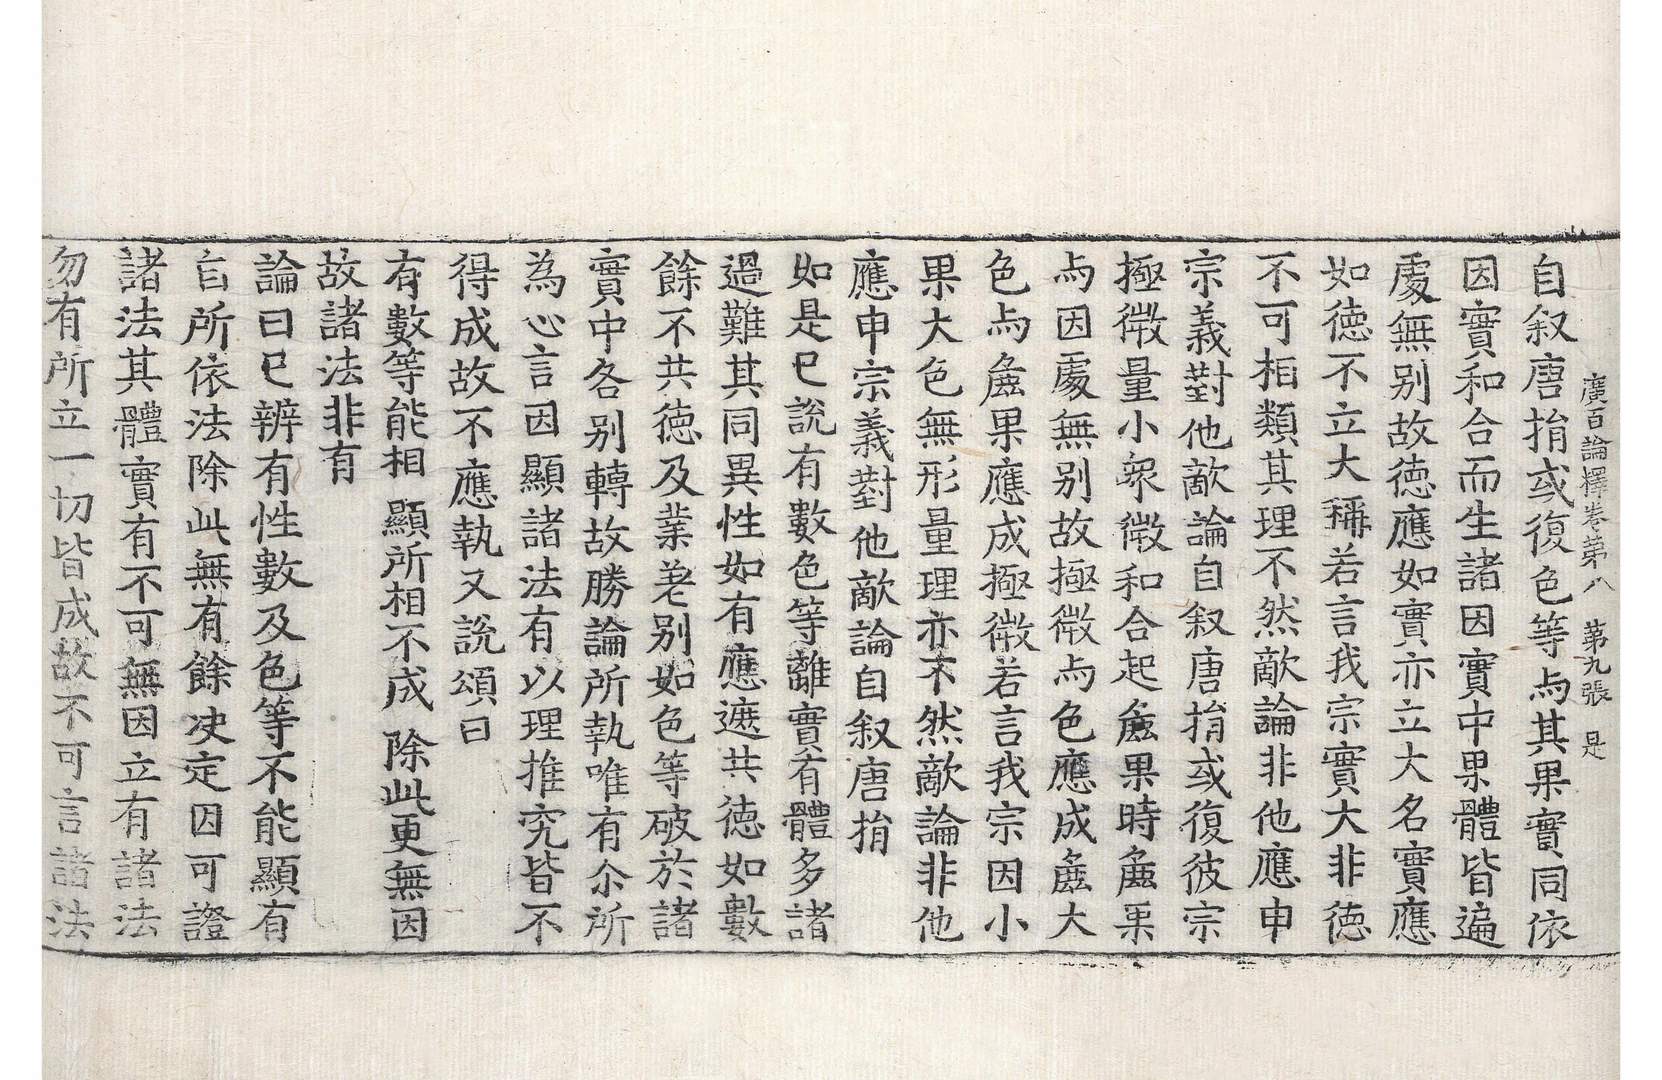 廣百論釋卷苐八 苐九張 是
自叙唐捐或復色等与其果實同依
因實和合而生諸因實中果體皆遍
處無別故徳應如實亦立大名實應
如徳不立大稱若言我宗實大非徳
不可相類其理不然敵論非他應申
宗義對他敵論自叙唐捐或復彼宗
極微量小衆微和合起麁果時麁果
与因處無別故極微与色應成麁大
色与麁果應成極微若言我宗因小
果大色無形量理亦不然敵論非他
應申宗義對他敵論自叙唐捐
如是已說有數色等離實有體多諸
過難其同異性如有應遮共徳如數
餘不共徳及業差別如色等破於諸
實中各別轉故勝論所執唯有尒所
為心言因顯諸法有以理推究皆不
得成故不應執又說頌曰
有數等能相 顯所相不成 除此更無因
故諸法非有
論曰已辨有性數及色等不能顯有
自所依法除此無有餘决定因可證
諸法其體實有不可無因立有諸法
勿有所立一切皆成故不可言諸法